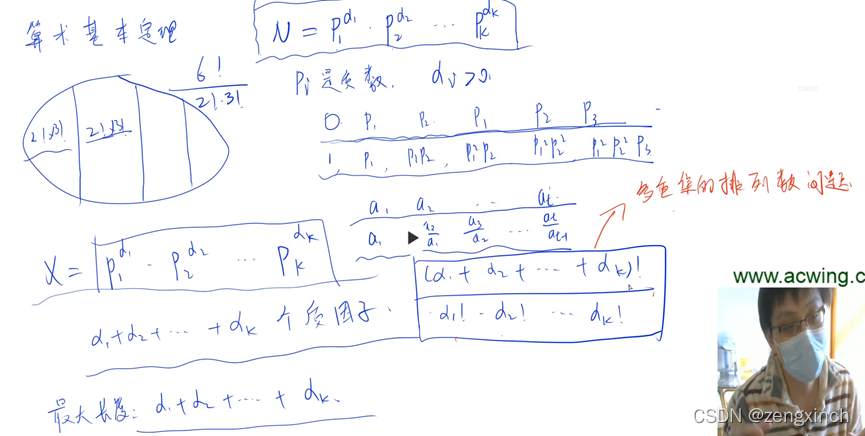 算术基本定理
N = P₁^α₁ · P₂^α₂ ⋯ Pₖ^αₖ
Pᵢ是质数. αᵢ>0.
6!
2!·3!
2!·3! 2!·3!
0 P₁ P₂ P₁ P₂ P₃
1, P₁, P₁P₂, P₁²P₂ P₁²P₂² P₁²P₂²P₃
a₁ a₂ ⋯ aₜ
a₁ a₂/a₁ a₃/a₂ ⋯ aₜ/aₜ₋₁
多重集的排列数问题
X = P₁^α₁ · P₂^α₂ ⋯ Pₖ^αₖ
(α₁ + α₂ + ⋯ + αₖ)!
α₁! · α₂! ⋯ αₖ!
α₁+α₂+⋯+αₖ个质因子.
最大长度: α₁+α₂+⋯+αₖ.
www.acwing.c
CSDN @zengxinch